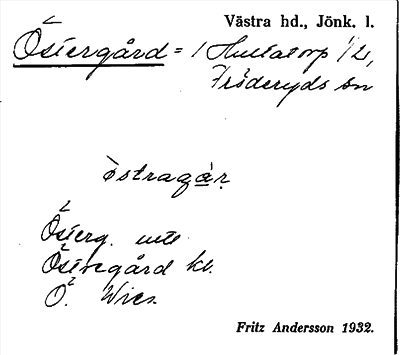 Västra hd., Jönk. l.
Östergård = 1 Hultatorp 1/2,
Fröderyds sn
östragár
Österg. utt
Östregård kl.
Ö. Wies.
Fritz Andersson 1932.